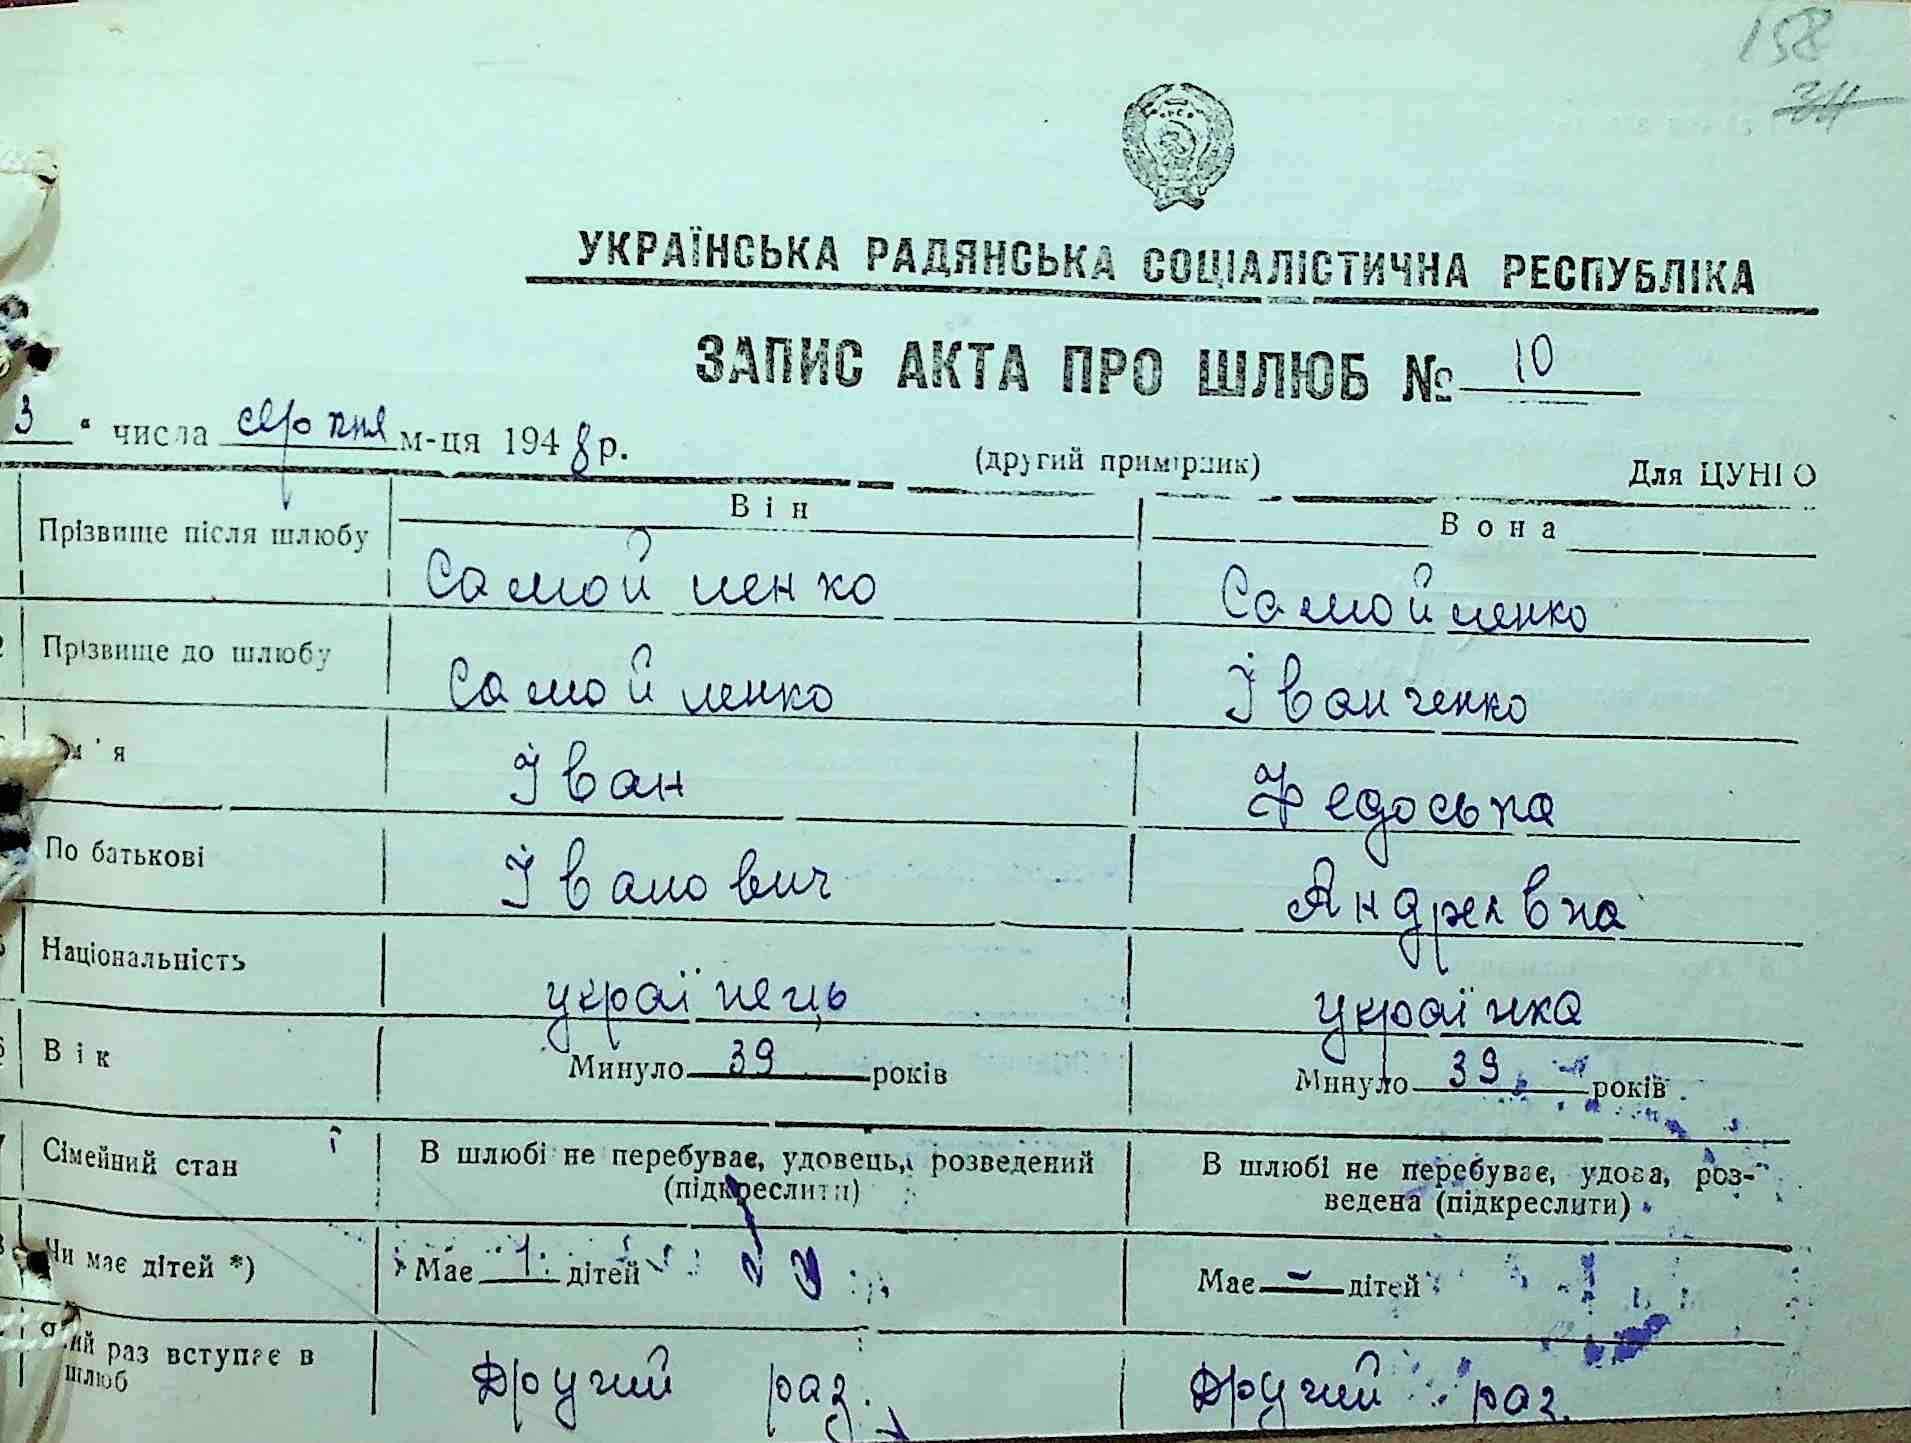 158
34
УКРАЇНСЬКА РАДЯНСЬКА СОЦІАЛІСТИЧНА РЕСПУБЛІКА
ЗАПИС АКТА ПРО ШЛЮБ № 10
3 " числа серпня м-ця 1948 р.
(другий примірник) Для ЦУНГО
Він Вона
Прізвище після шлюбу Самойленко Самойленко
2 Прізвище до шлюбу Самойленко Іванченко
Ім'я Іван Федоська
По батькові Іванович Андреевна
5 Національність українець українка
6 Вік Минуло 39 років Минуло 39 років
7 Сімейний стан В шлюбі не перебуває, удовець, розведений В шлюбі не перебуває, удова, роз-
(підкреслити) ведена (підкреслити)
8 Чи має дітей *) Має 1 дітей Має - дітей
Який раз вступає в
шлюб Другий раз. Другий раз.